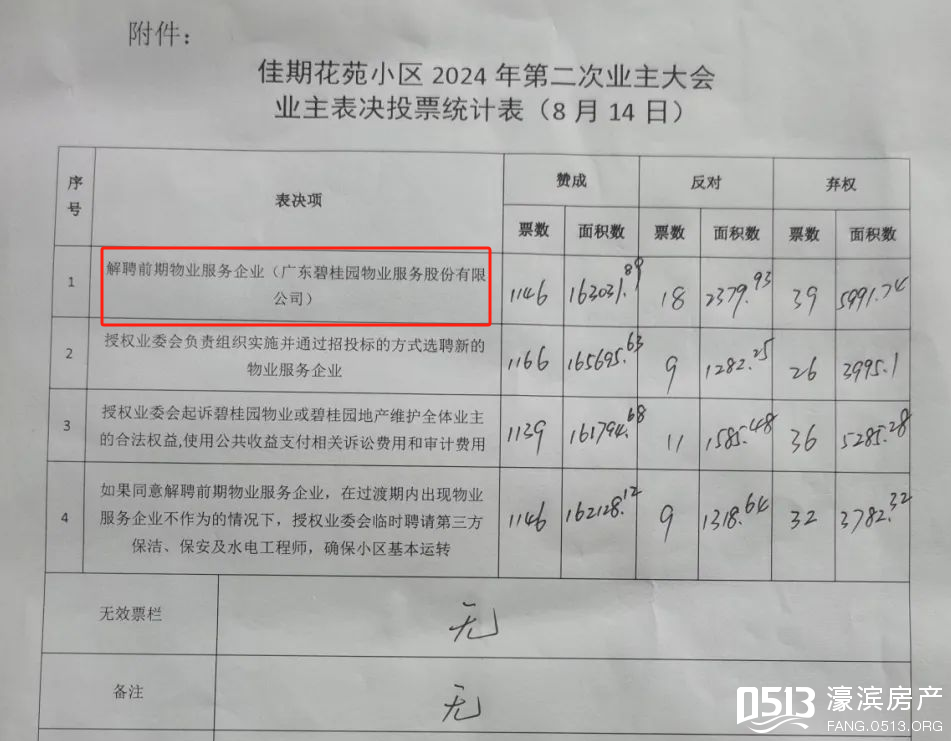 附件：
佳期花苑小区 2024 年第二次业主大会
业主表决投票统计表（8 月 14 日）
序号 表决项 赞成 反对 弃权
票数 面积数 票数 面积数 票数 面积数
1 解聘前期物业服务企业（广东碧桂园物业服务股份有限
公司） 1146 163031.89 18 2379.93 39 5991.74
2 授权业委会负责组织实施并通过招投标的方式选聘新的
物业服务企业 1166 165695.63 9 1282.25 26 3995.1
3 授权业委会起诉碧桂园物业或碧桂园地产维护全体业主
的合法权益,使用公共收益支付相关诉讼费用和审计费用 1139 161794.68 11 1585.48 36 5285.28
4 如果同意解聘前期物业服务企业，在过渡期内出现物业
服务企业不作为的情况下，授权业委会临时聘请第三方
保洁、保安及水电工程师，确保小区基本运转 1146 162128.12 9 1318.64 32 3782.32
无效票栏 无
备注 无
0513 濠滨房产
FANG.0513.ORG